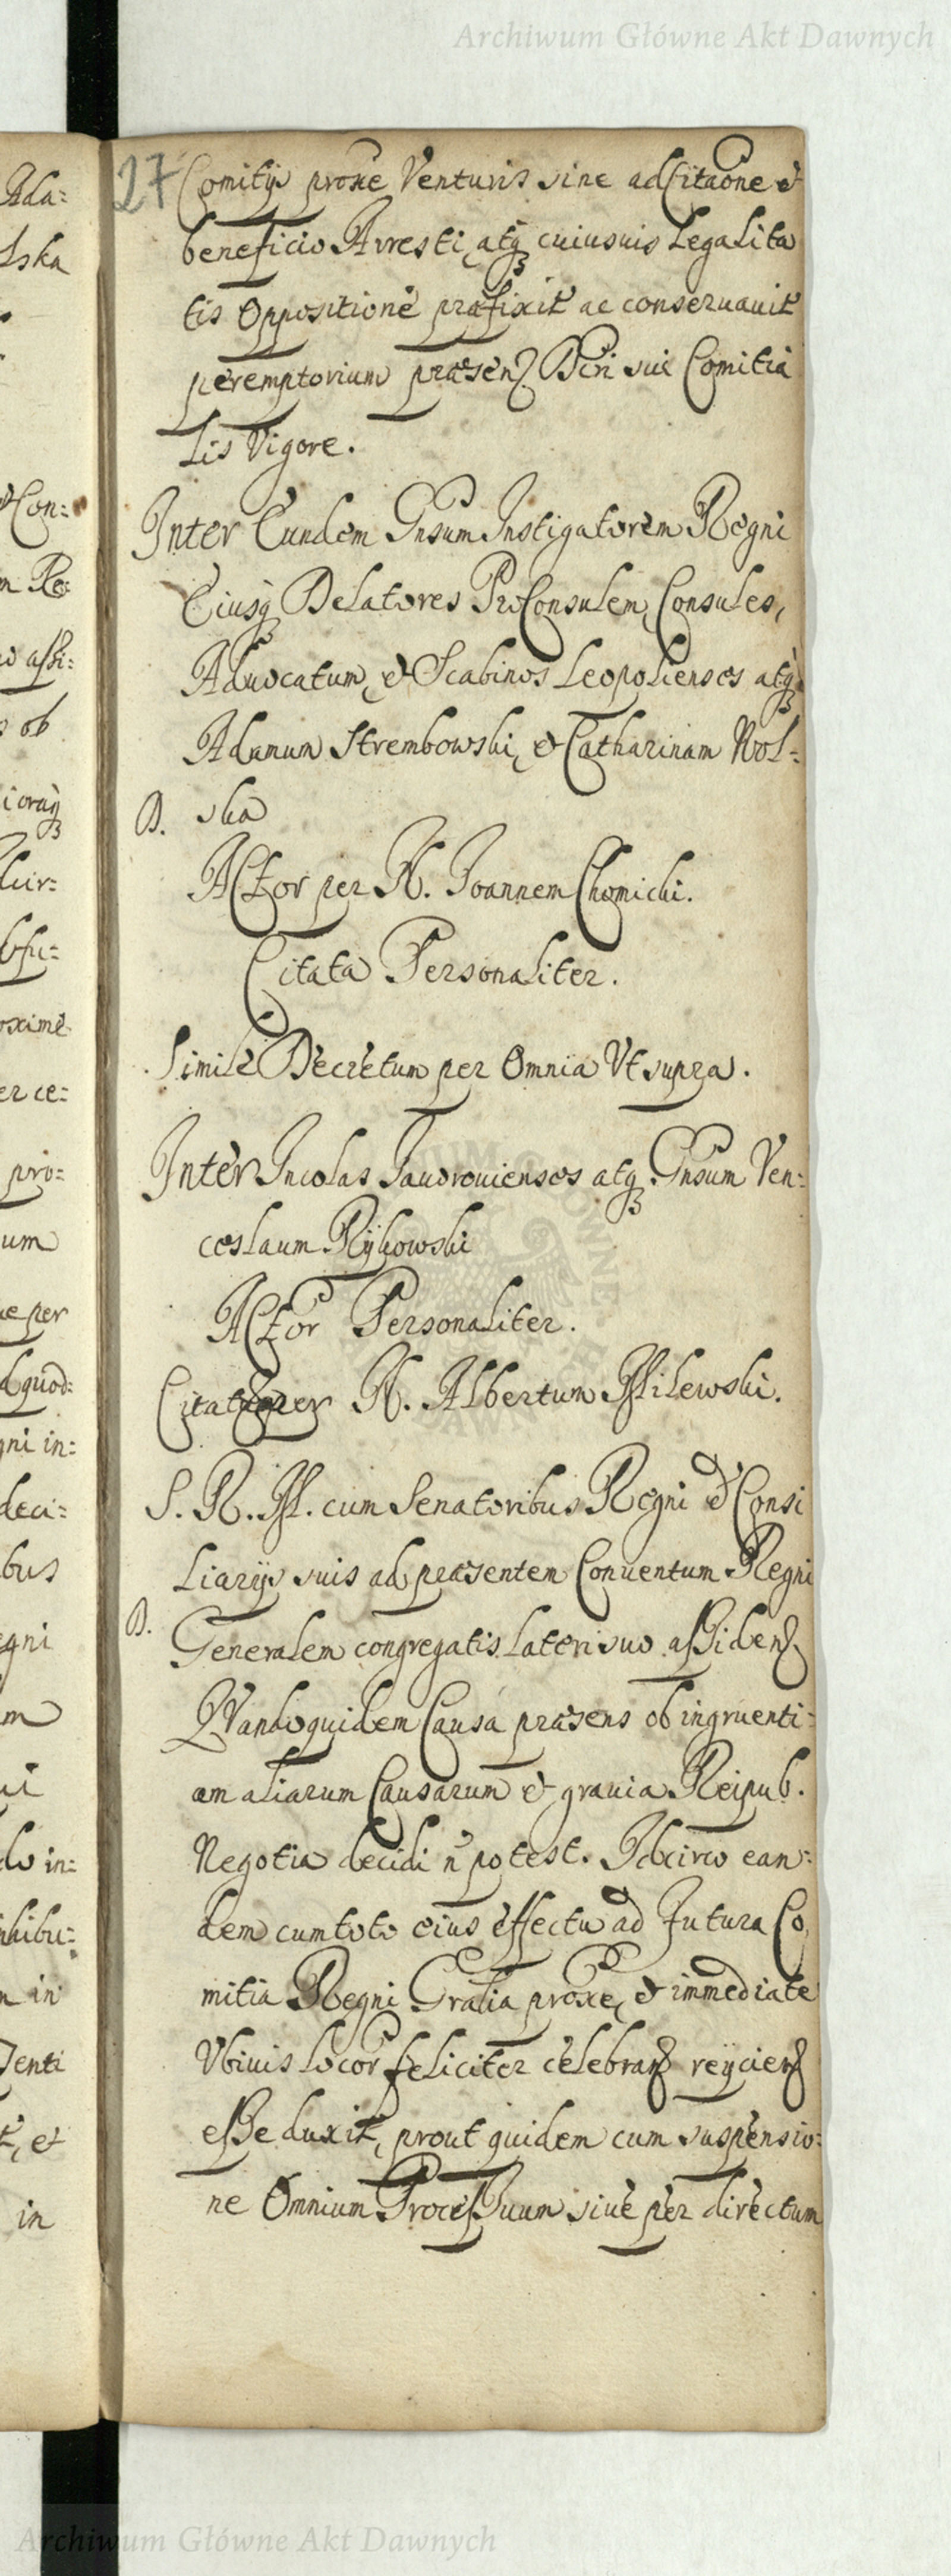 Archiwum Główne Akt Dawnych
27 Comitijs proxe Venturis sine adCitaone et
beneficio Arresti, atq cuiusuis Legalita
tis Oppositione præfixit ac conseruauit
peremptorium præsen Dcri sui Comitia
Lis Vigore.
Inter Eundem Gnsum Instigatorem Regni
Eiusq Delatores ProConsulem, Consules,
Aduocatum, et Scabinos Leopolienses atq
Adamum Strembowski, et Catharinam Wol-
D. ska
ACtor per N. Joannem Chomicki.
Citata Personaliter.
Simile Decretum per Omnia Vt supra.
Inter Incolas Jauorouienses atq Gnsum Ven-
ceslaum Rÿkowski
ACtor Personaliter.
Citat per N. Albertum Milewski.
S. R. M. cum Senatoribus Regni et Consi
Liarijs suis ad præsentem Conuentum Regni
D. Generalem congregatis Lateri suo assiden
QVandoquidem Causa præsens ob ingruenti-
am aliarum Causarum et grauia Reipub.
Negotia decidi n potest. Idcirco ean-
dem cum toto eius effectu ad Futura Co
mitia Regni Gralia proxe, et immediate
Vbiuis locor feliciter celebran reijcien
esse duxit, prout quidem cum suspensio-
ne Omnium Processuum siue per directum
Ada-
Lska
Con-
m Re-
assi-
ob
Cur-
oxime
er ce-
pro-
um
ue per
quod-
gni in-
deci-
bus
egni
m
ui
do in-
hibu-
n in
et
in
Archiwum Główne Akt Dawnych